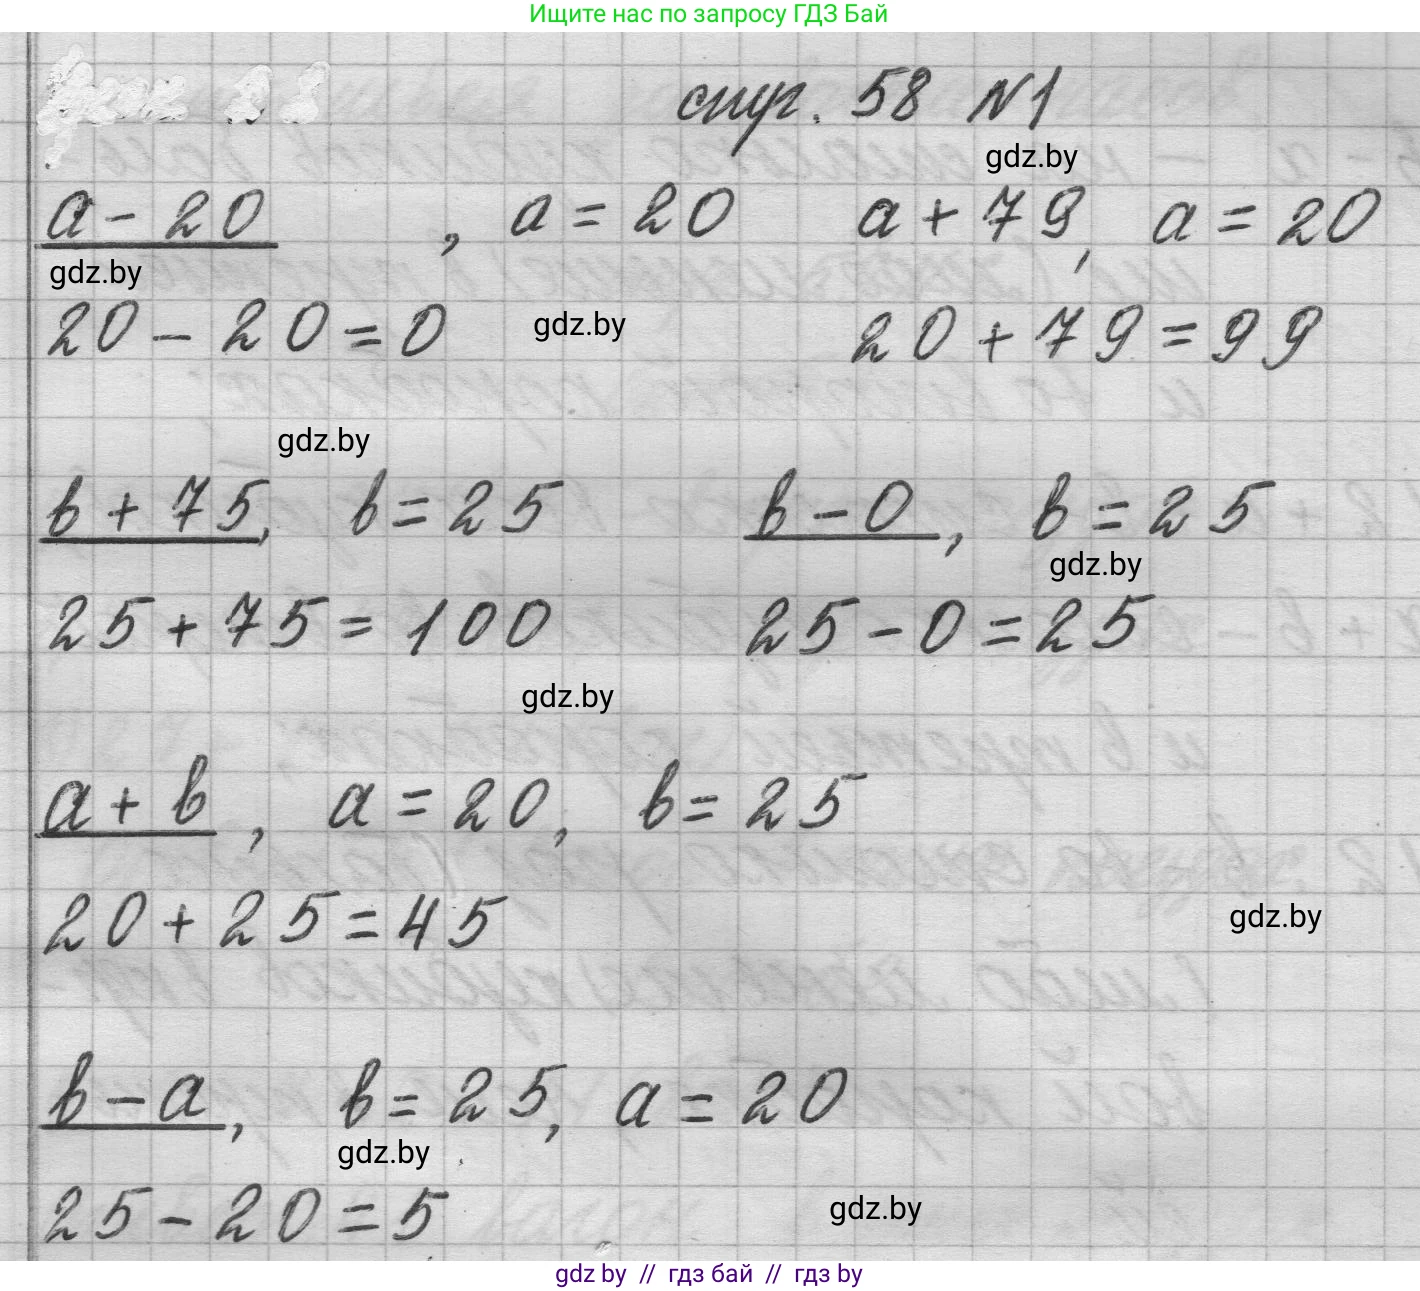 Ищите нас по запросу ГДЗ Бай
стр. 58 №1
gdz.by
a - 20 , a = 20 a + 79, a = 20
gdz.by
20 - 20 = 0 gdz.by 20 + 79 = 99
gdz.by
b + 75, b = 25 b - 0, b = 25
gdz.by
25 + 75 = 100 25 - 0 = 25
gdz.by
a + b, a = 20, b = 25
20 + 25 = 45
gdz.by
b - a, b = 25, a = 20
gdz.by
25 - 20 = 5
gdz.by
gdz by // гдз бай // гдз by